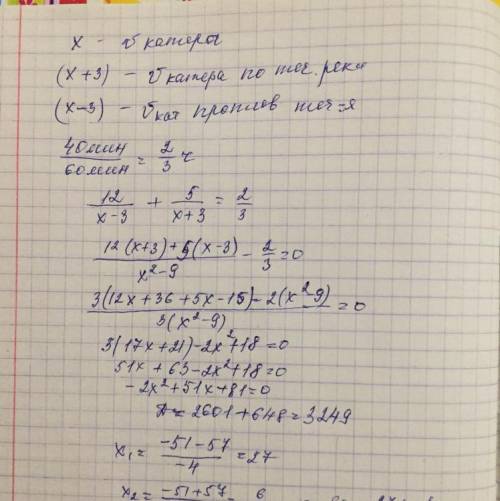 x - v катера
(x+3) - v катера по теч. реки
(x-3) - v кат против теч-я
40мин/60мин = 2/3 ч
12/(x-3) + 5/(x+3) = 2/3
(12(x+3)+5(x-3))/(x²-9) - 2/3 = 0
(3(12x+36+5x-15)-2(x²-9))/(3(x²-9)) = 0
3(17x+21)-2x²+18=0
51x+63-2x²+18=0
-2x²+51x+81=0
D=2601+648=3249
x₁= (-51-57)/(-4) = 27
x₂= -51+57 = 6